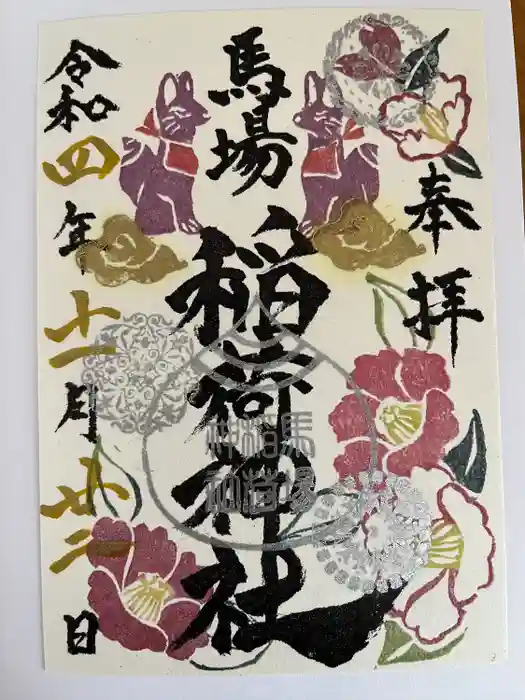 奉拝
馬場
稲荷神社
馬場
稲荷
神社
令和四年十一月廿二日